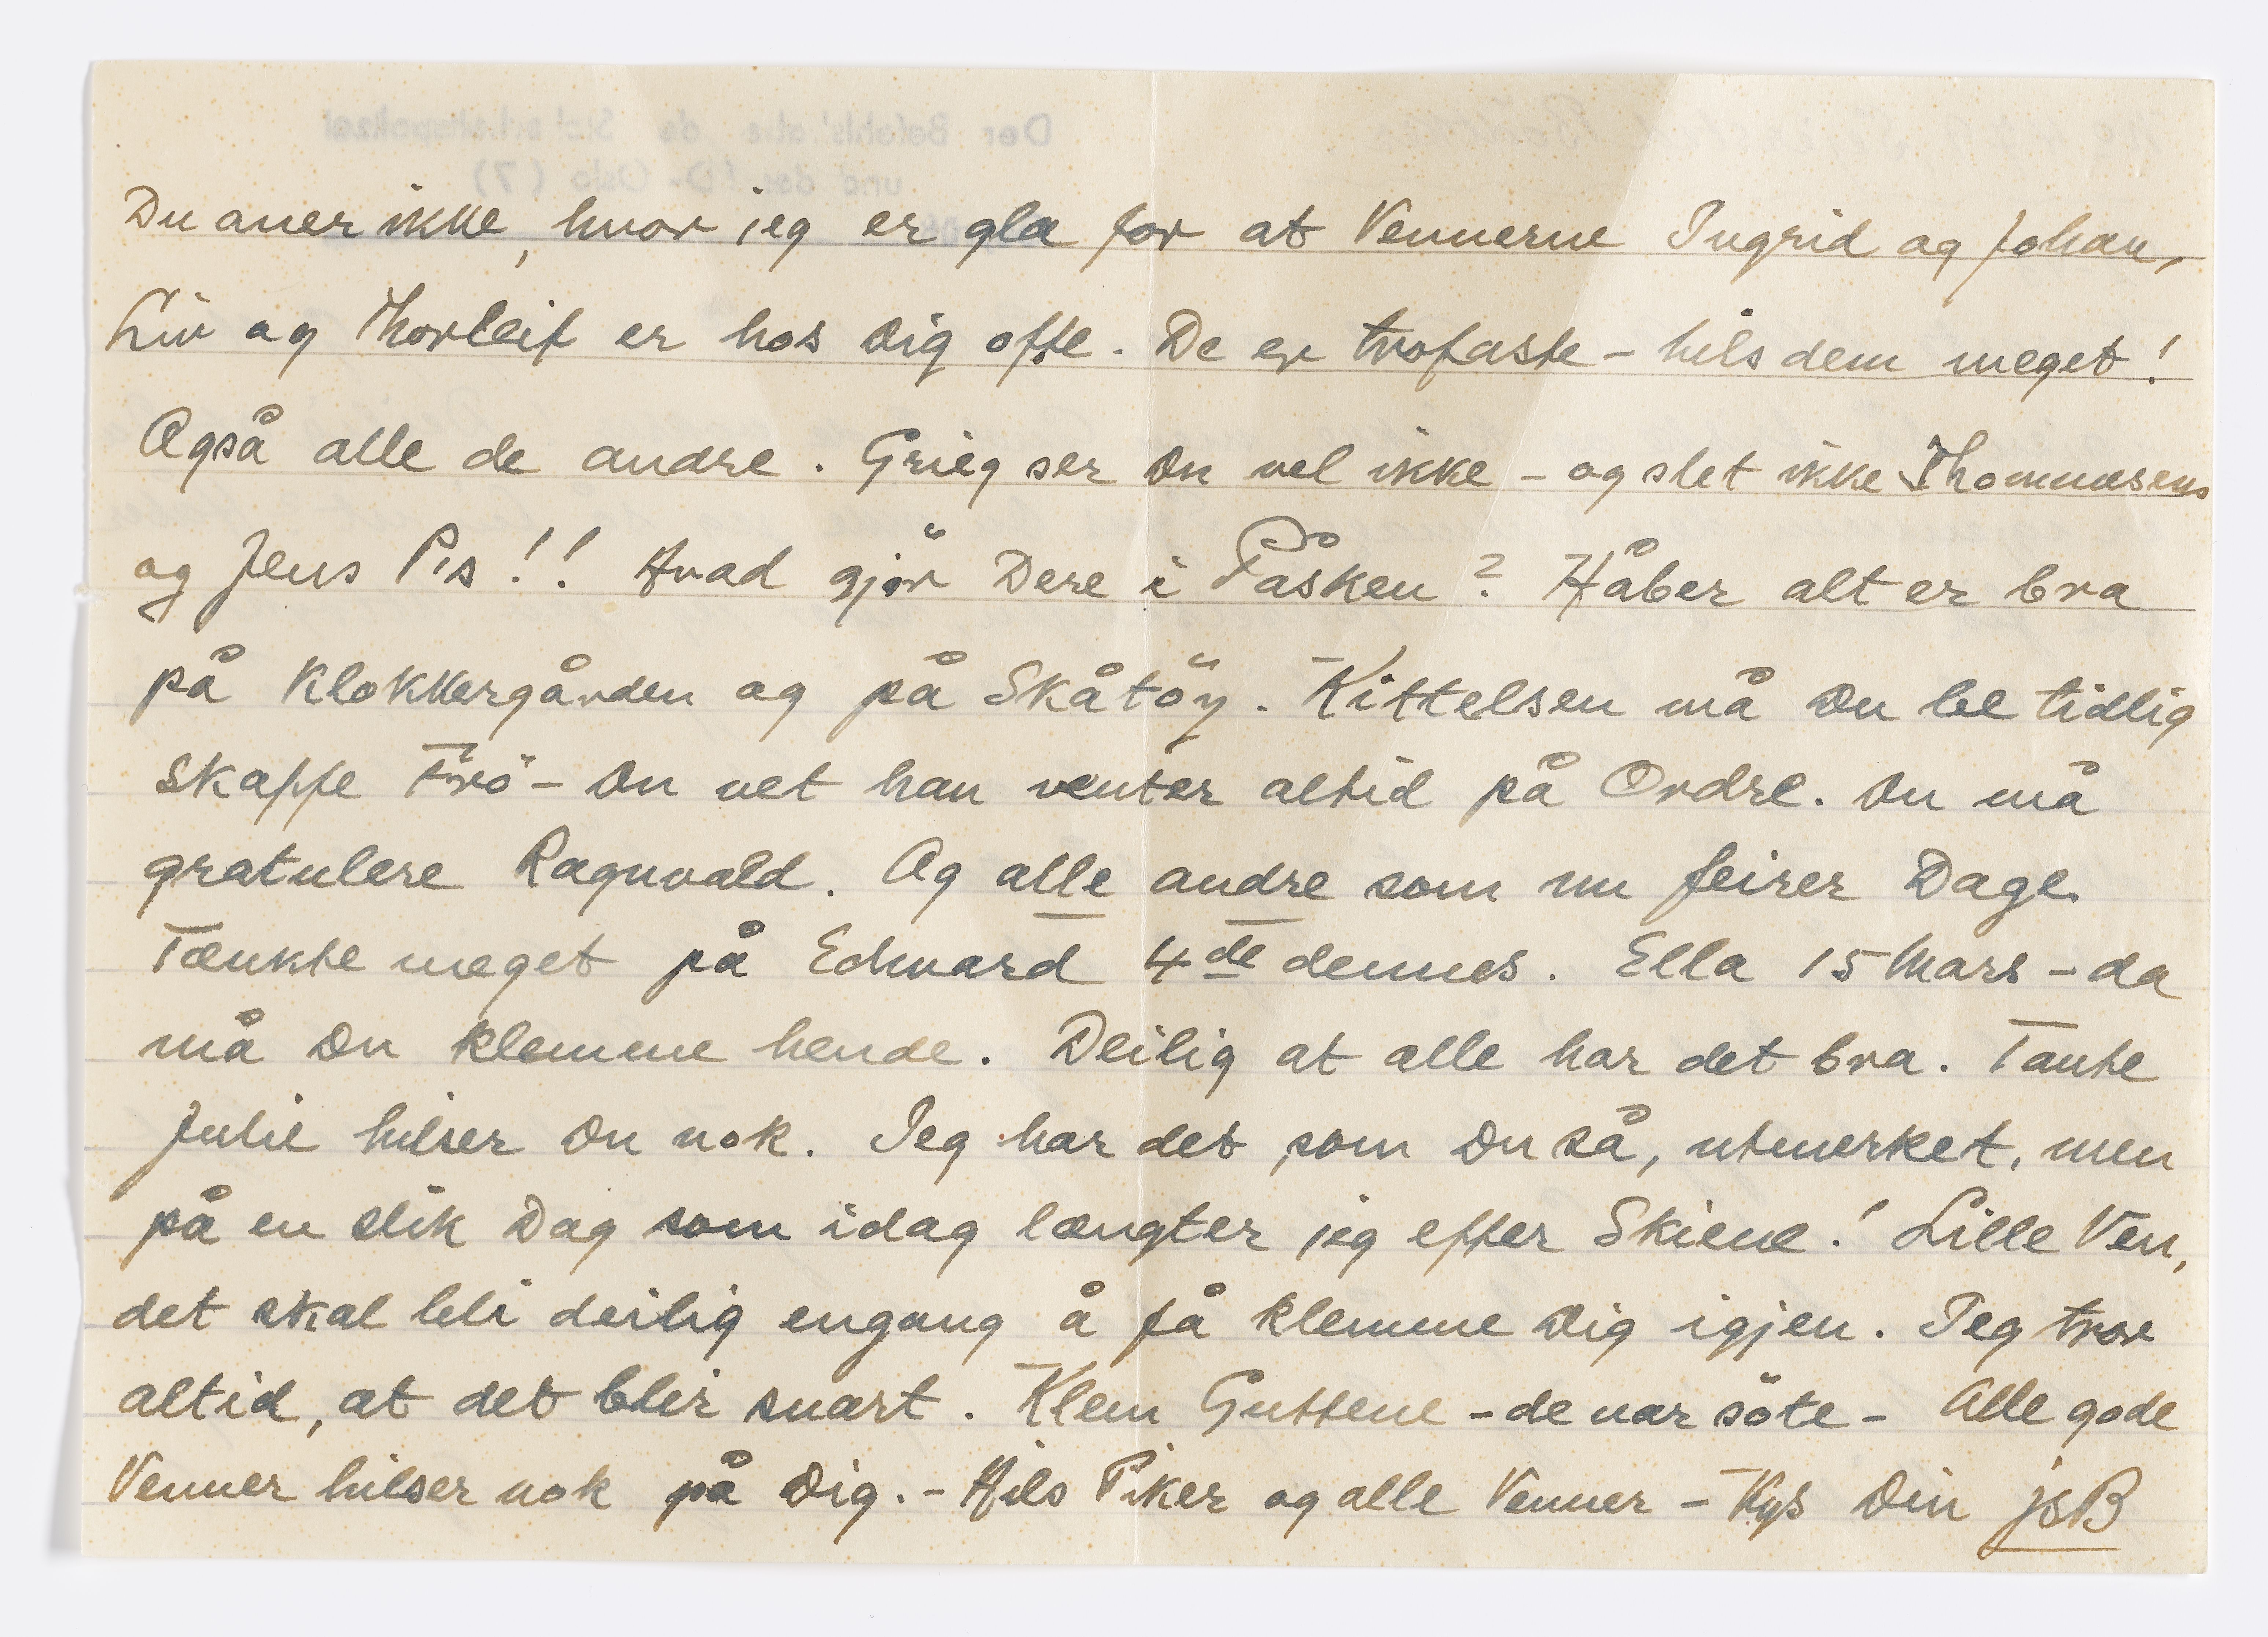 Du aner ikke, hvor jeg er gla for at Vennerne Ingrid og Johan,
Liv og Thorleif er hos Dig ofte. De er trofaste – hils dem meget!
Også alle de andre. Grieg ser Du vel ikke – og slet ikke Thommesens
og Jens Pis!! Hvad gjör Dere i Påsken? Håber alt er bra
på Klokkergården og på Skåtöy. Kittelsen må Du be tidlig
skaffe Frö – Du vet han venter altid på Ordre. Du må
gratulere Ragnvald. Og alle andre som nu feirer Dage.
Tænkte meget på Edvard 4de dennes. Ella 15 Mars – da
må Du klemme hende. Deilig at alle har det bra. Tante
Julie hilser Du nok. Jeg har det, som Du så, utmerket, men
på en slik Dag som idag længter jeg efter Skiene! Lille Ven,
det skal bli deilig engang å få klemme Dig igjen. Jeg tror
altid, at det blir snart. Klem Guttene – de var söte – Alle gode
Venner hilser nok på Dig. – Hils Piker og alle Venner – Kys Din jsB
Der Befehlshabe de Sicherheitspolizei
und des SD. Oslo (7)